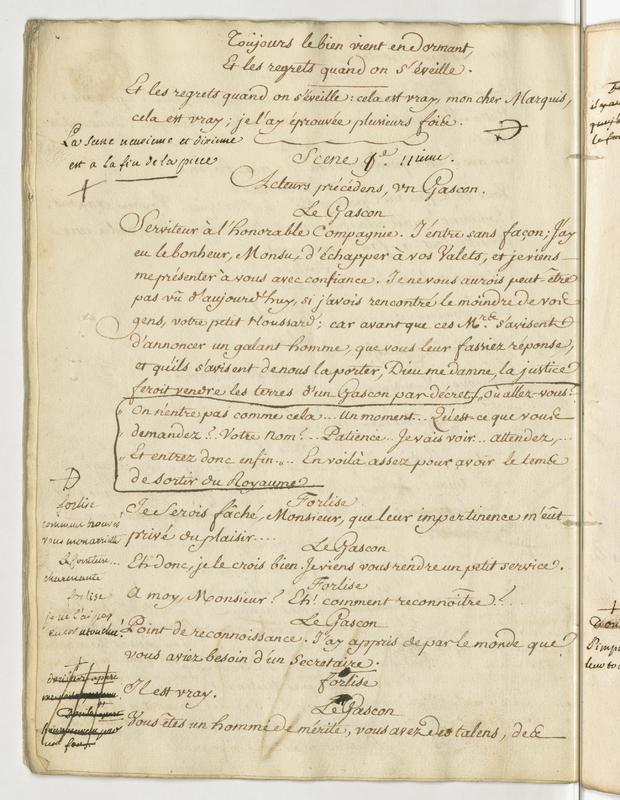 Toujours le bien vient en dormant,
Et les regrets quand on s'éveille.
Et les regrets quand on s'éveille : cela est vray, mon cher Marquis,
cela est vray ; je l'ay éprouvée plusieurs fois.
La scene neuvieme et dixieme
est a la fin de la piece
Scene 11ieme.
Acteurs précédens, un Gascon.
Le Gascon
Serviteur à l'honorable Compagnie. J'entre sans façon ; J'ay
eu le bonheur, Monsu, d'échapper à vos Valets, et je viens
me présenter à vous avec confiance. Je ne vous aurois peut-être
pas vû d'aujourd'huy, si j'avois rencontré le moindre de vos
gens, votre petit Houssard ; car avant que ces Mrs. s'avisent
d'annoncer un galant homme, que vous leur fassiez réponse,
et qu'ils s'avisent de nous la porter, Dieu me damne, la justice
feroit vendre les terres d'un Gascon par decret. Où allez-vous ?
On n'entre pas comme cela... Un moment... Qu'est-ce que vous
demandez ?. Votre nom ?.. Patience.. Je vais voir... attendez,...
Et entrez donc enfin... En voilà assez pour avoir le tems
de sortir du Royaume.
Forlise
Je serois fâché, Monsieur, que leur impertinence m'eût
privé du plaisir....
Le Gascon
Eh donc, je le crois bien. Je viens vous rendre un petit service.
Forlise
A moy, Monsieur ? Eh ! comment reconnoître ?...
Le Gascon
Point de reconnoissance. J'ay appris de par le monde que
vous aviez besoin d'un Secretaire.
Forlise
Il est vray.
Le Gascon
Vous êtes un homme de mérite, vous avez des talens, de
forlise
comment
vous
charmante
forlise
je ne l'ai pas
encor